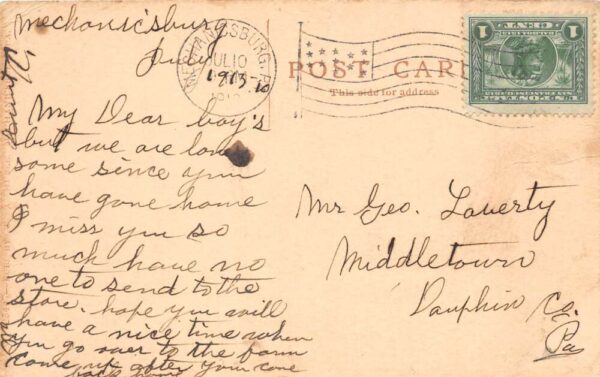 Mechanicsburg
July
1913. 10
MECHANICSBURG, PA.
JUL 10
POST CARD
This side for address
1 CENT 1
My Dear boy's
but we are lone
some since you
have gone home
I miss you so
much have no
one to send to the
store. hope you will
have a nice time when
you go over to the farm
come up after your cone
Mr Geo. Laverty
Middletown
Dauphin Co.
Pa